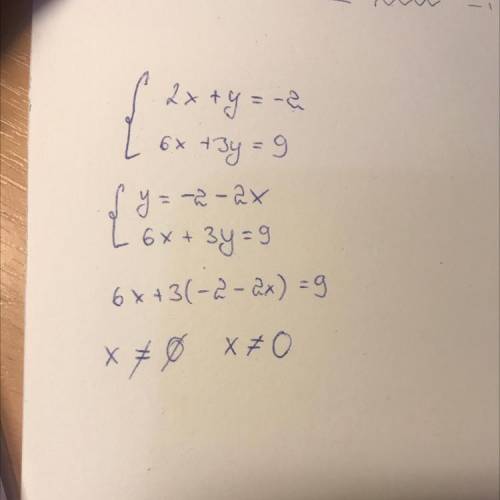 2x + y = -2
6x + 3y = 9
y = -2 - 2x
6x + 3y = 9
6x + 3(-2 - 2x) = 9
x ≠ ∅ x ≠ 0